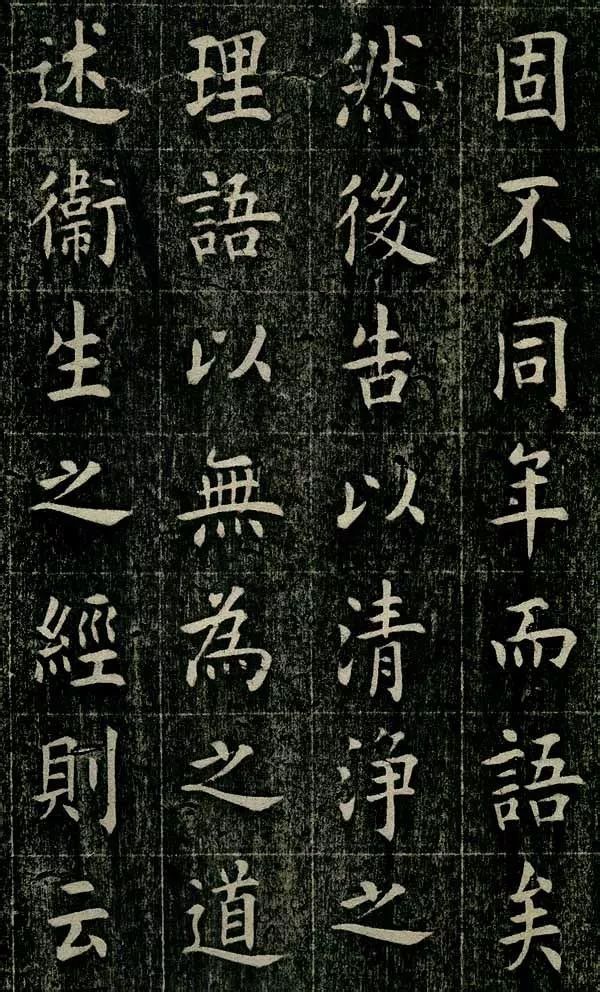 固不同年而語矣
然後告以清淨之
理語以無為之道
述衞生之經則云